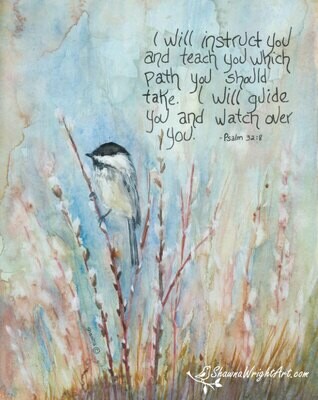 I will instruct you
and teach you which
path you should
take. I will guide
you and watch over
you.
-Psalm 32:8
ShawnaWrightArt.com